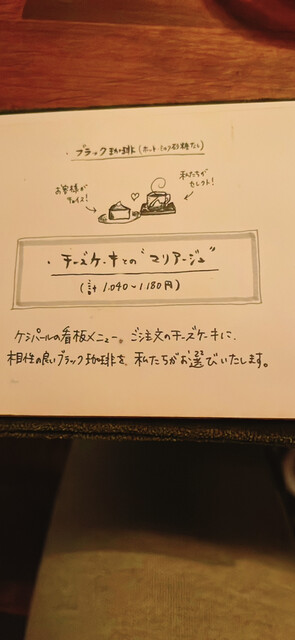 ・ブラック珈琲(ホットのみ・砂糖なし)
お客様が
チョイス!
私たちが
セレクト!
・チーズケーキとの"マリアージュ"
(計 1.040~1.180円)
ケシパールの看板メニュー。ご注文のチーズケーキに、
相性の良いブラック珈琲を、私たちがお選びいたします。